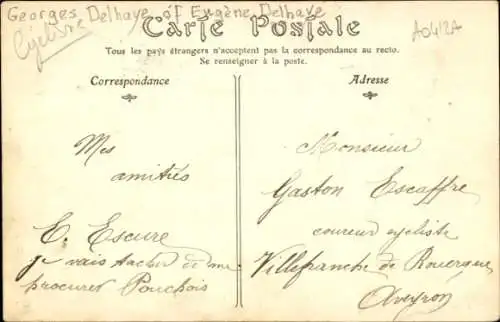 Georges Delhaye of Eugène Delhaye
Cycliste
Carte Postale
A0412A
Tous les pays étrangers n'acceptent pas la correspondance au recto.
Se renseigner à la poste.
Correspondance
Adresse
Mes
amitiés
E. Escure
je vais tacher de me
procurer Pouchois
Monsieur
Gaston Escaffre
coureur cycliste
Villefranche de Rouergue
Aveyron